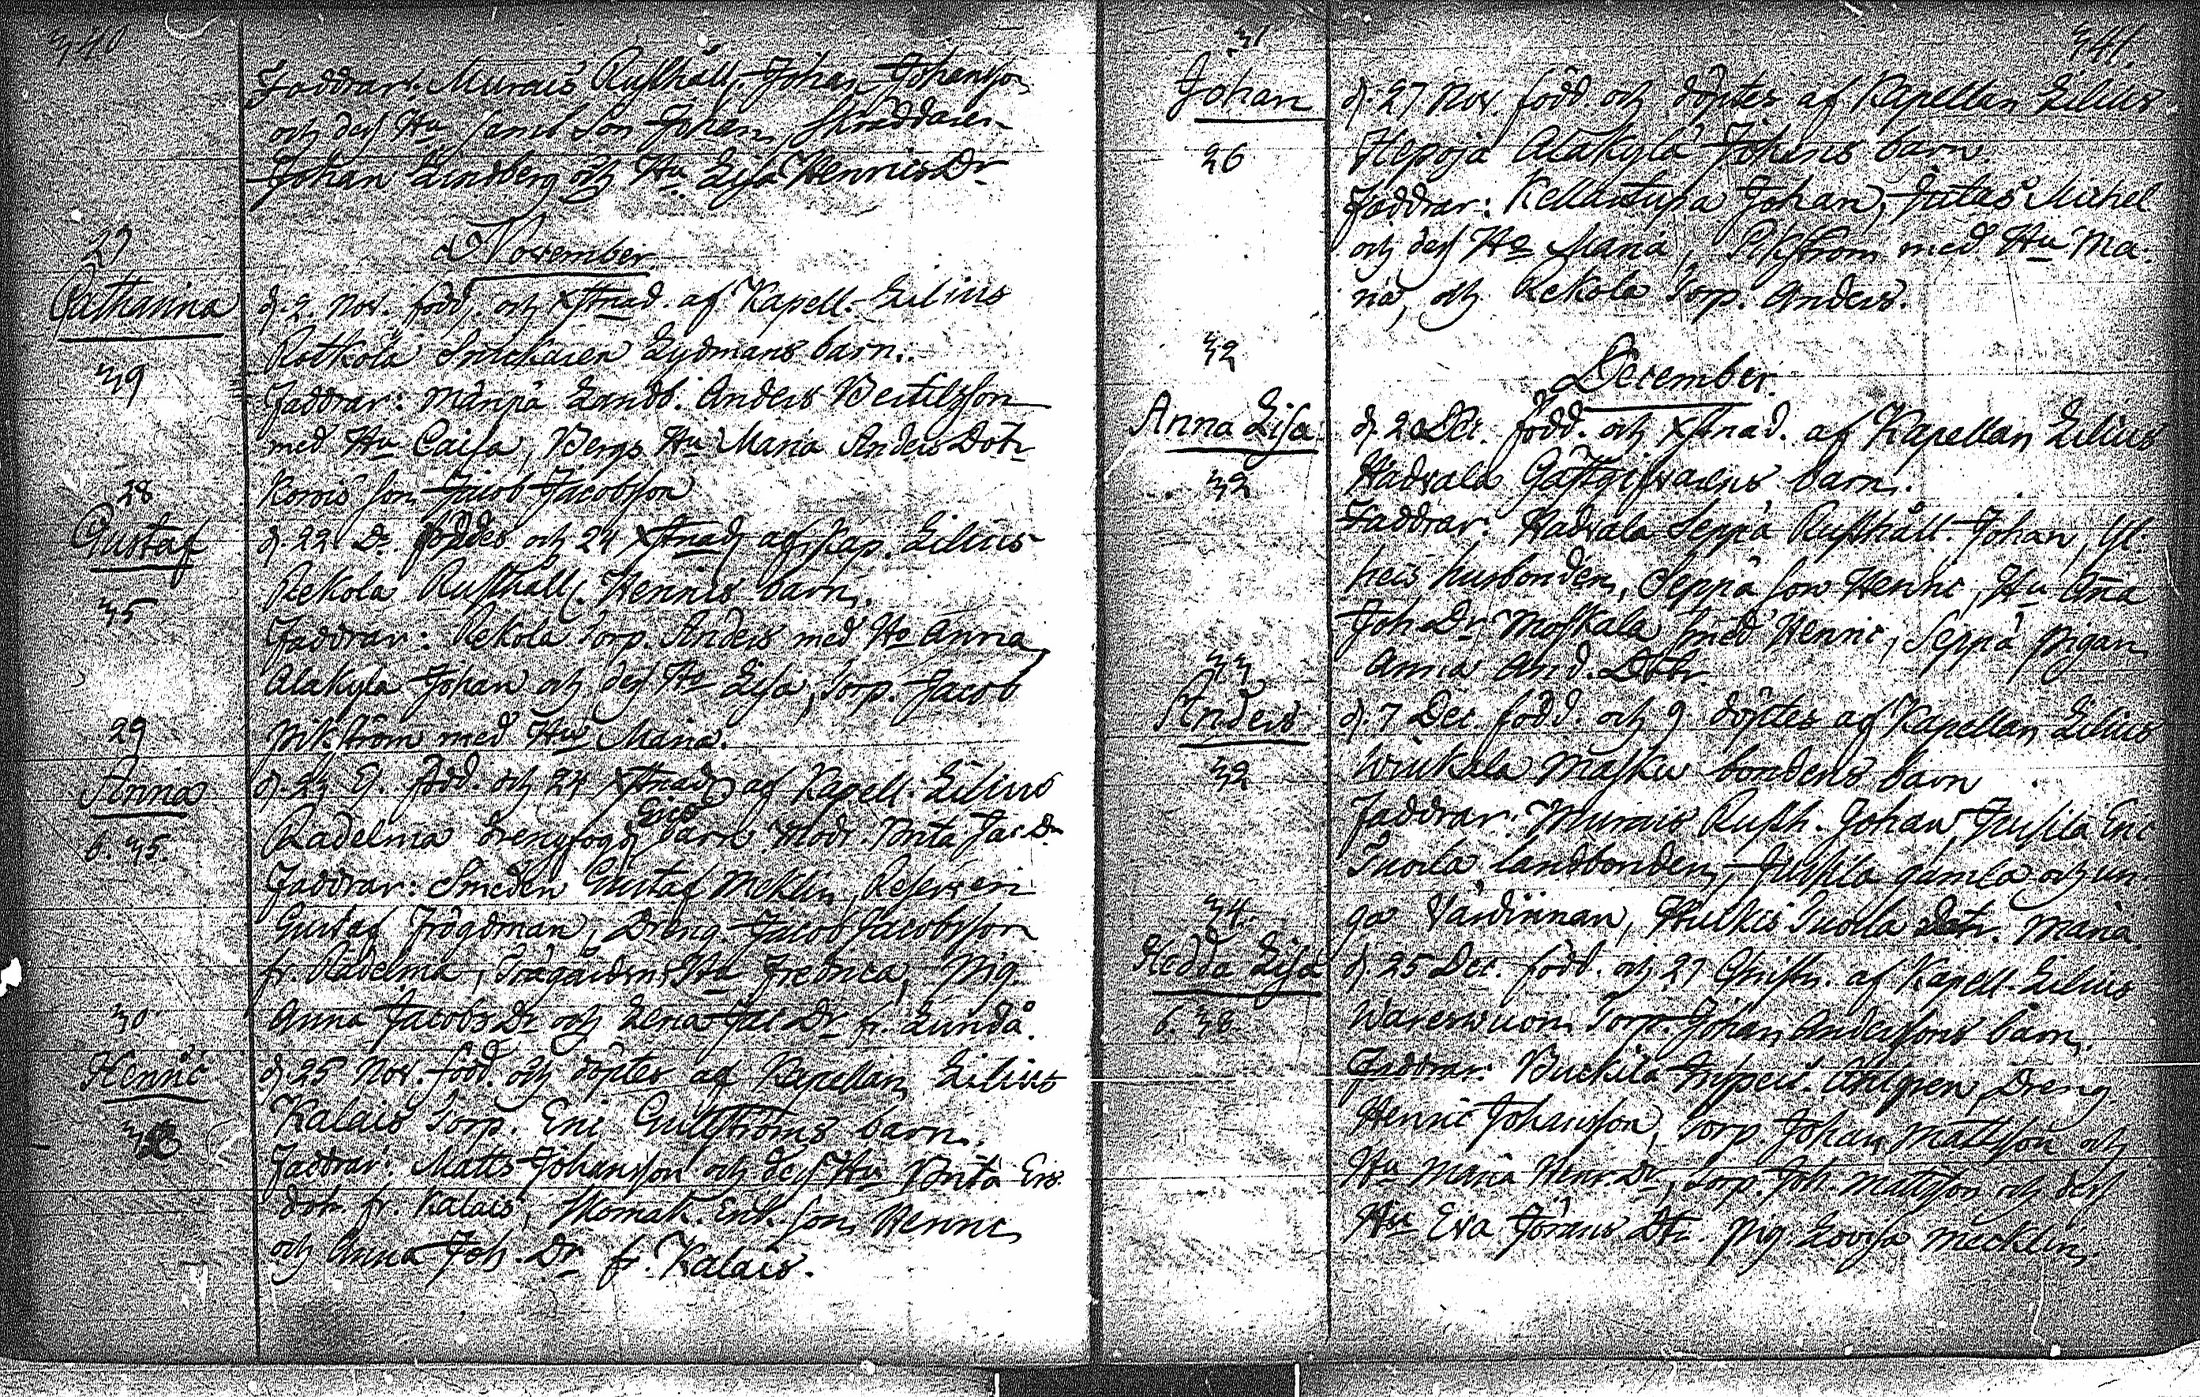 340
Faddrar: Murnais Rusthåll. Johan Johansson
och dess Hu samt Son Johan, Skräddaren
Johan Lindberg och Hu Lisa Henrics Dr
November
27
Catharina
39
d. 2 Nov. född, och Xstnad. af Kapell. Lilius
Rotkola Snickaren Lydmans barn.
Faddrar: Manja Landb. Anders Bertilsson
med Hu Caisa, Bergs Hu Maria Anders Dotr
son Jacob Jacobsson
28
Gustaf
35
d. 22 Do. föddes och 24 Xstnad, af Kap. Lilius
Rekola Rusthåll. Henrics barn.
Faddrar: Rekola Torp. Anders med Hu Anna,
Alakyla Johan och dess Hu Lisa, Torp. Jacob
Pikström med Hu Maria.
29
Anna
6. 35.
d. 23 Ej. född. och 24 Xstnad, af Kapell. Lilius
Radelma drengfogd, Erics barn Modr. Brita Jac. Dr
Faddrar: Smeden Gustaf Meklin, Reserven
Gustaf Frögdman, Dreng. Jacob Jacobsson
fr. Radelma, Trägårdsm. Hu Fredrica, Pig.
Anna Jacobs Dr och Lena Jac Dr fr. Lundå.
30
Henric
d. 25 Nov. född. och döptes af Kapellan Lilius
Kalais Torp. Eric Gullströms barn.
Faddrar: Matts Johansson och dess Hu Brita Ers
dotr. fr. Kalais, Skomak. Enk. son Henric
och Anna Joh. Dr fr. Kalais.
341.
31
Johan
26
d. 27 Nov. född. och döptes af Kapellan Lilius
Hepoja Alakyla Johans barn.
Faddrar: Kellartupa Johan, Jutas Michel
och dess Hu Maria, med Hu Ma-
ria, och Rekola Torp. Anders.
32
December.
Anna Lisa
32
d. 2 Dec. född. och Xstnad. af Kapellan Lilius
Hadvala Gästgifvarens barn.
Faddrar: Hadvala Seppä Rusthåll. Johan, Yl
husbonden, Seppä son Henric, Hu Ana
Joh. Dr, Moskala smed Henric, Seppä pigan
Anna And. Dotr.
33
Anders
32
d. 7 Dec. född. och 9 döptes af Kapellan Lilius
Wiukala Masku bondens barn
Faddrar: Murnais Rusth. Johan, Jussila Eric
Tuorla landbonden, Jussila gamla och un-
ga Värdinnan, Hulkis Tuorla dotr. Maria
34.
Hedda Lisa
6. 38
d. 25 Dec. född. och 27 Christn. af Kapell. Lilius
Torp. Johan Anderssons barn.
Faddrar: Buckila Inspect. Ahlgren, Dreng
Henric Johansson, Torp. Johan Mattsson och
Hu Maria Henr. Dr, Torp. Joh. Mattsson och dess
Hu Eva Jörans Dtr. Pig. Lovisa Mecklin.